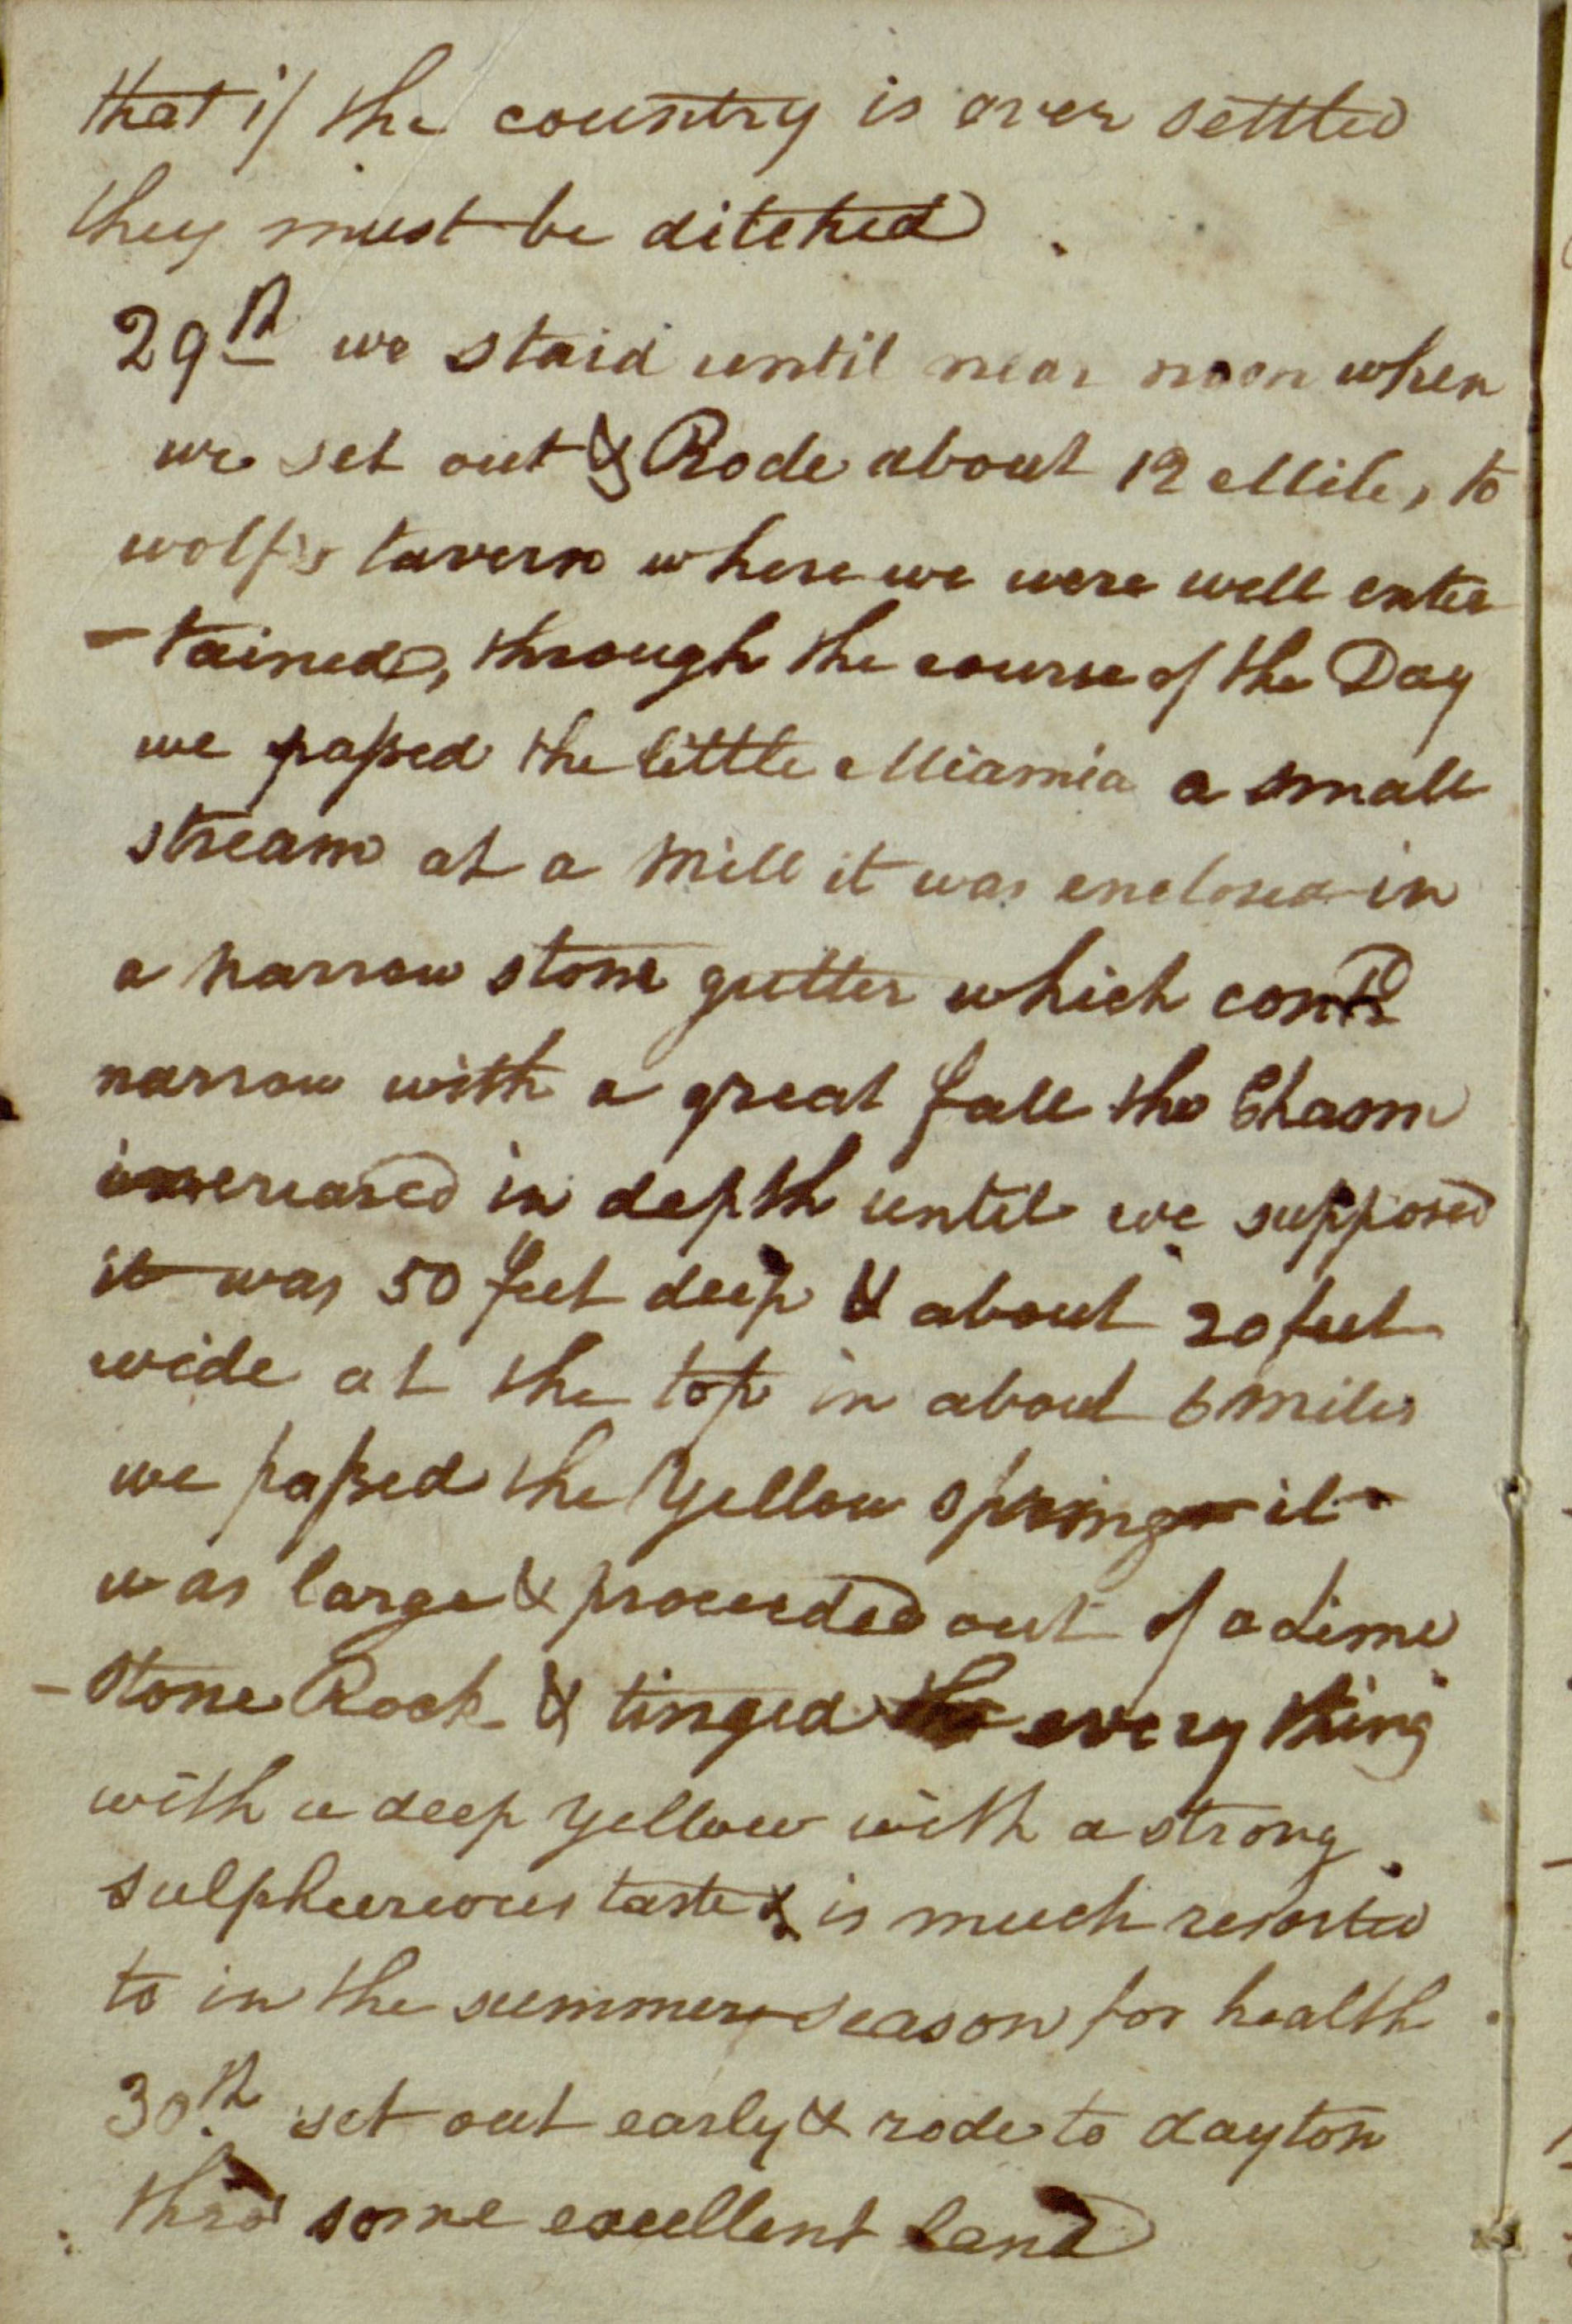 that if the country is over settled
they must be ditched.
29th we staid until near noon when
we set out & Rode about 12 Miles to
wolf's tavern where we were well enter
-tained, through the course of the Day
we passed the little Miamia a small
stream at a Mill it was enclosed in
a narrow stone gutter which contd
narrow with a great fall the Chasm
increased in depth until we supposed
it was 50 feet deep & about 20 feet
wide at the top in about 6 miles
we passed the Yellow spring it
was large & proceeded out of a Lime
-stone Rock & tinged the every thing
with a deep Yellow with a strong
sulphureious taste & is much resorted
to in the summer season for health
30th set out early & rode to dayton
thro some excellent land